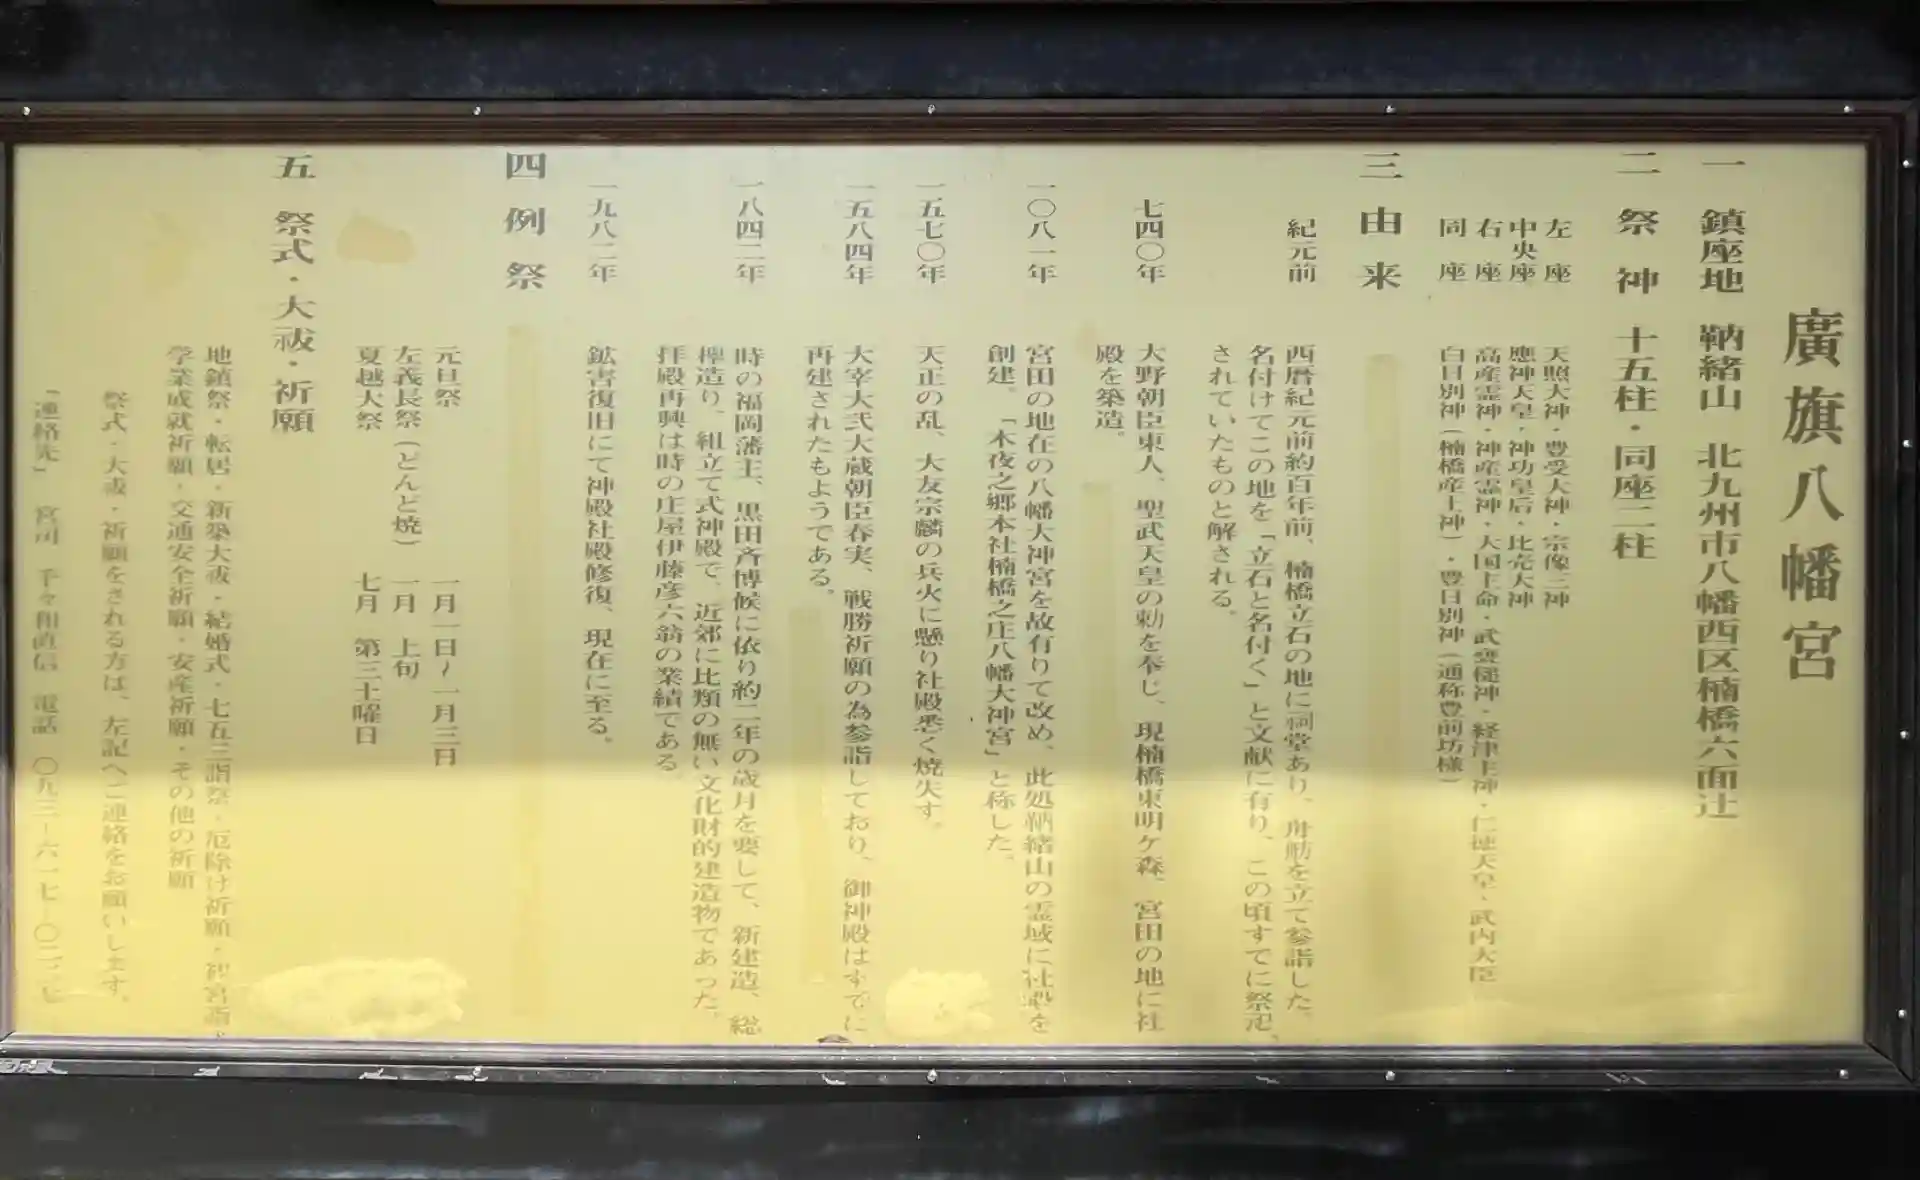 廣旗八幡宮
一 鎮座地 鞆緒山 北九州市八幡西区楠橋六面辻
二 祭神 十五柱・同座二柱
左座 天照大神・豊受大神・宗像三神
中央座 應神天皇・神功皇后・比売大神
右座 高産霊神・神産霊神・大国主命・武甕槌神・経津主神・仁徳天皇・武内大臣
同座 白日別神(楠橋産土神)・豊日別神(通称豊前坊様)
三 由来
紀元前 西暦紀元前約百年前、楠橋立石の地に祠堂あり、舟舫を立て参詣した。
名付けてこの地を「立石と名付く」と文献に有り、この頃すでに祭祀
されていたものと解される。
七四〇年 大野朝臣東人、聖武天皇の勅を奉じ、現楠橋東明ヶ森、宮田の地に社
殿を築造。
一〇八一年 宮田の地在の八幡大神宮を故有りて改め、此処鞆緒山の霊域に社殿を
創建。「木夜之郷本社楠橋之庄八幡大神宮」と称した。
一五七〇年 天正の乱、大友宗麟の兵火に懸り社殿悉く焼失す。
一五八四年 大宰大弐大蔵朝臣春実、戦勝祈願の為参詣しており、御神殿はすでに
再建されたもようである。
一八四二年 時の福岡藩主、黒田斉博候に依り約二年の歳月を要して、新建造、総
欅造り、組立て式神殿で、近郊に比類の無い文化財的建造物であった。
拝殿再興は時の庄屋伊藤彦六翁の業績である。
一九八二年 鉱害復旧にて神殿社殿修復、現在に至る。
四 例祭
元旦祭 一月一日~一月三日
左義長祭(どんど焼) 一月 上旬
夏越大祭 七月 第三土曜日
五 祭式・大祓・祈願
地鎮祭・転居・新築大祓・結婚式・七五三詣祭・厄除け祈願・初宮詣・
学業成就祈願・交通安全祈願・安産祈願・その他の祈願
祭式・大祓・祈願をされる方は、左記へご連絡をお願いします。
「連絡先」 宮司 千々和直信 電話 〇九三-六一七-〇二二七